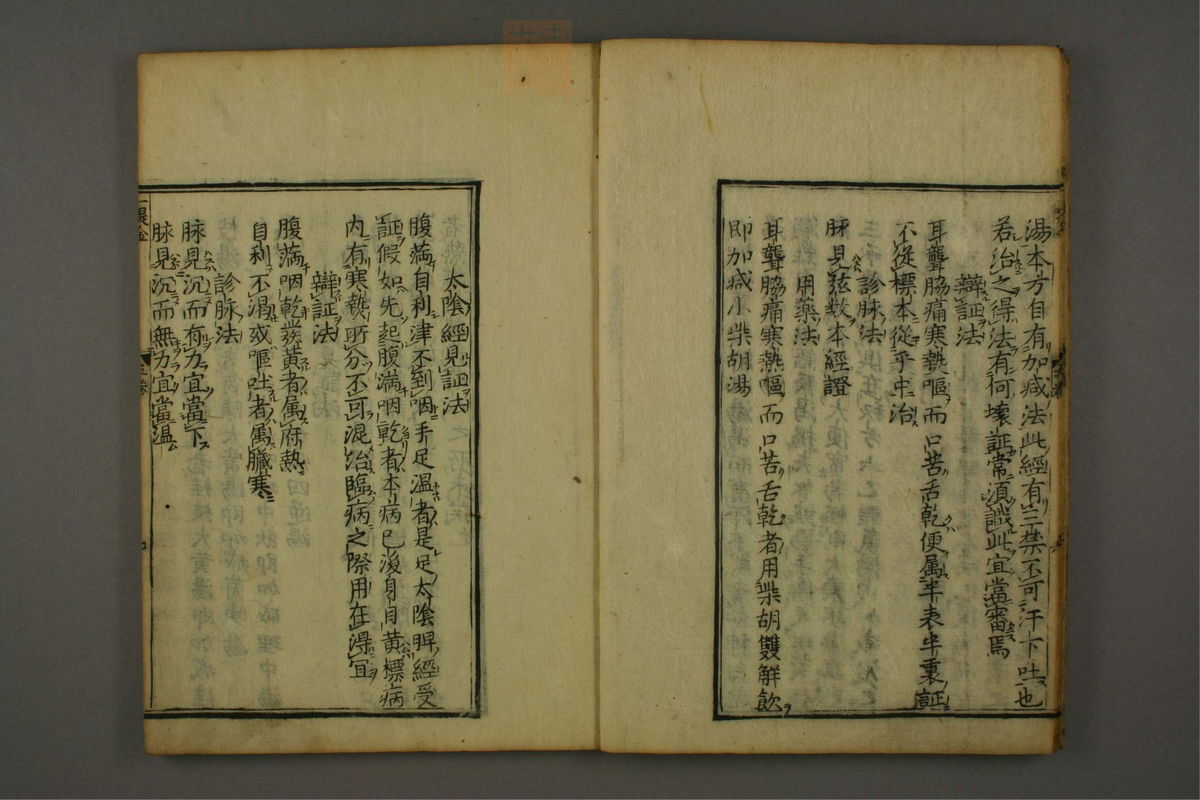 湯本方自有加减法此經有三禁不可汗下吐也
若治之得法有何壞証常須識此宜當審焉
辯証法
耳聾脇痛寒熱嘔而口苦舌乾便属半表半裏証
不從標本從乎中治
診脉法
脉見弦数本經證
用藥法
耳聾脇痛寒熱嘔而口苦舌乾者用柴胡雙解飲
即加减小柴胡湯
太陰經見証法
腹滿自利津不到咽手足溫者是足太陰脾經受
証假如先起腹滿咽乾者本病已後身目黃標病
内有寒熱所分不可混治臨病之際用在得宜
辯証法
腹滿咽乾發黃者属府熱
自利不渴或嘔吐者属臓寒
診脉法
脉見沉而有力宜當下
脉見沉而無力宜當温